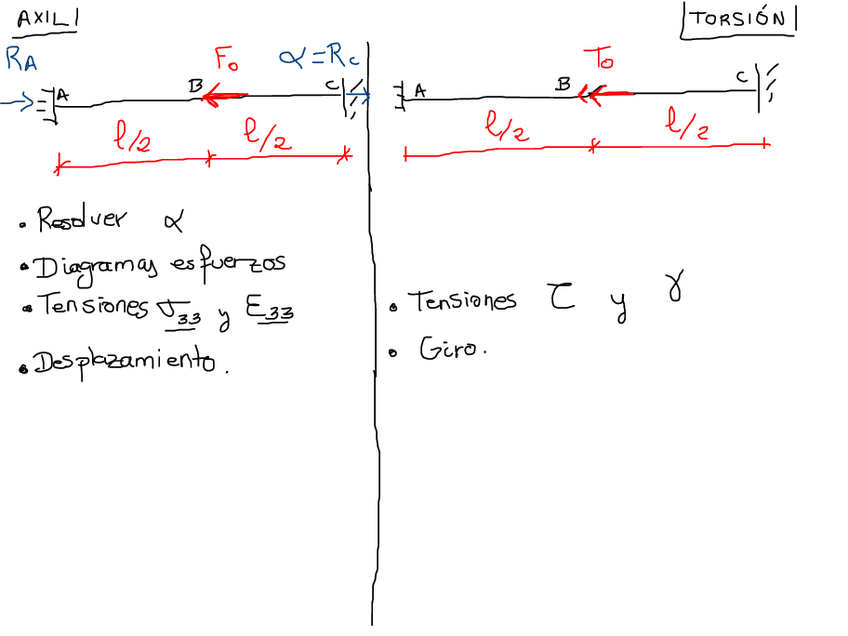 AXIL
R_A
F_0
α = R_C
A
B
C
l/2
l/2
• Resolver α
• Diagramas esfuerzos
• Tensiones σ_33 y ε_33
• Desplazamiento.
TORSIÓN
T_0
A
B
C
l/2
l/2
• Tensiones τ y γ
• Giro.